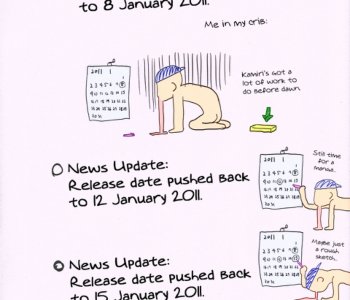 to 8 January 2011.
Me in my crib:
Kamiri's got a
lot of work to
do before dawn.
2011 1
News Update:
Release date pushed back
to 12 January 2011.
Still time
for a
manga.
2011 1
News Update:
Release date pushed back
to 15 January 2011.
Maybe just
a rough
sketch.
2011 1